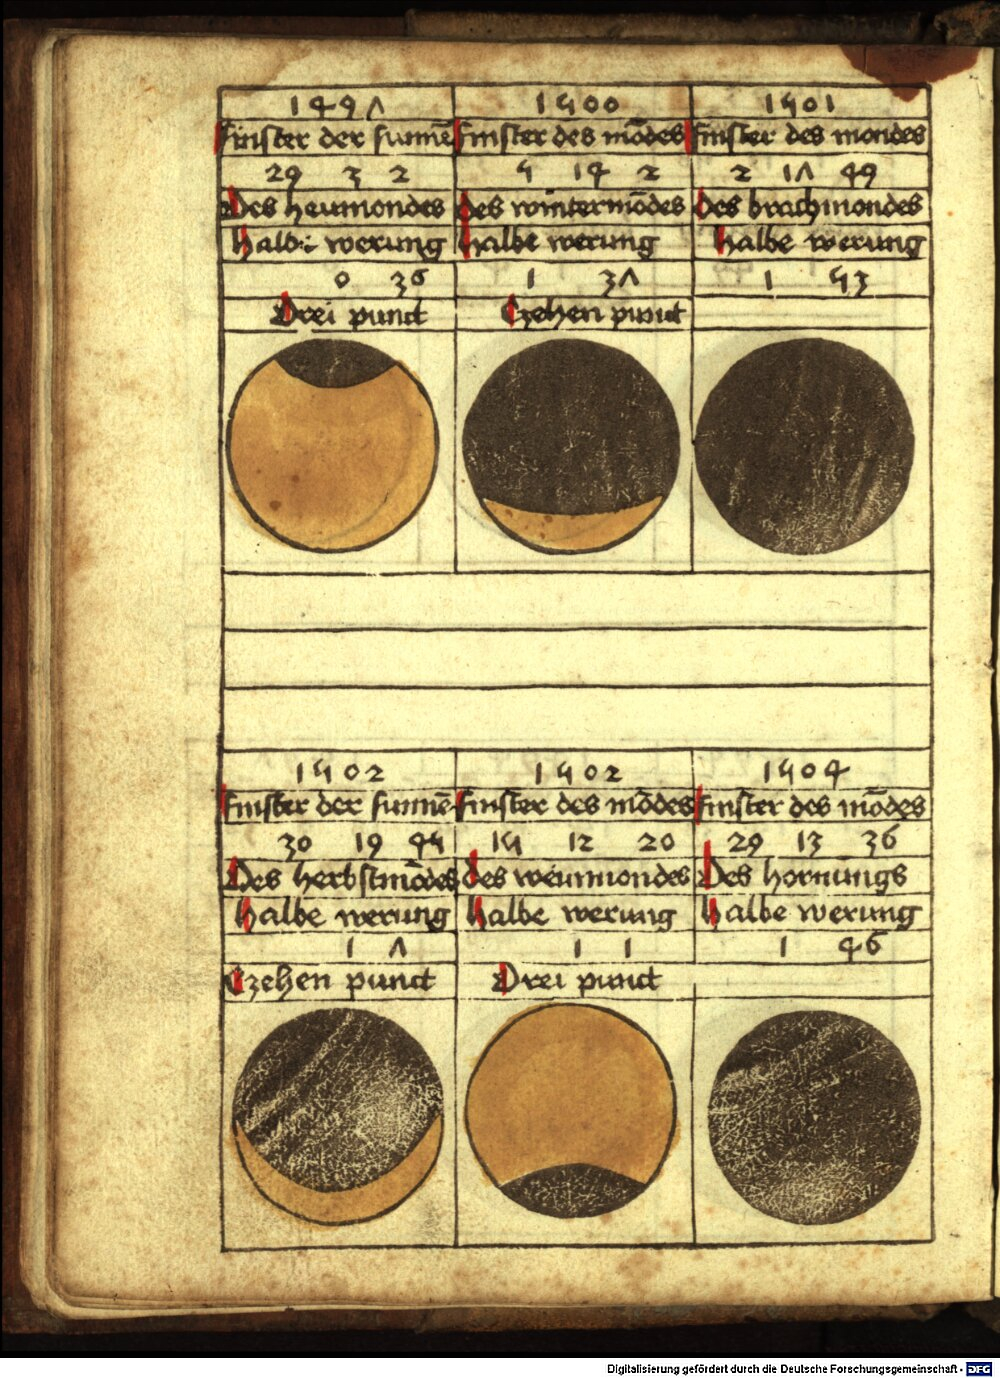 1497
finster der sunnē
29 3 2
Des heumondes
halbe werung
0 36
Drei punct
1500
finster des mōdes
5 14 2
des wintermōdes
halbe werung
1 37
Czehen punct
1501
finster des mondes
2 17 49
des brachmondes
halbe werung
1 53
1502
finster der sunnē
30 19 45
Des herbstmōdes
halbe werung
1 7
Czehen punct
1502
finster des mōdes
15 12 20
des weinmondes
halbe werung
1 1
Drei punct
1504
finster des mōdes
29 13 36
Des hornungs
halbe werung
1 46
Digitalisierung gefördert durch die Deutsche Forschungsgemeinschaft - DFG